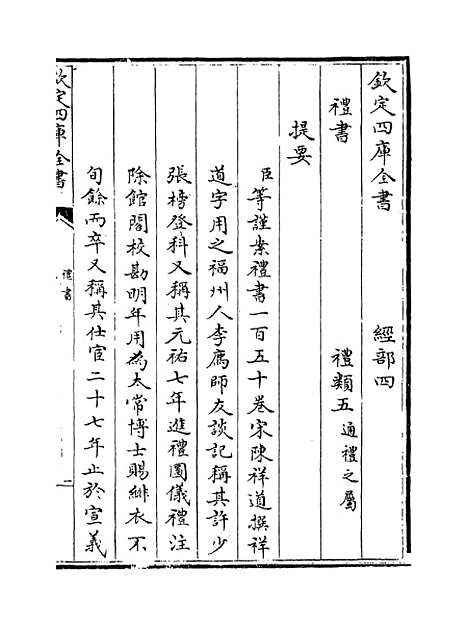 欽定四庫全書　經部四
禮書　禮類五通禮之屬
提要
臣等謹案禮書一百五十卷宋陳祥道撰祥
道字用之福州人李廌師友談記稱其許少
張榜登科又稱其元祐七年進禮圖儀禮注
除館閣校勘明年用為太常博士賜緋衣不
旬餘而卒又稱其仕宦二十七年止於宣義
欽定四庫全書
禮書
一